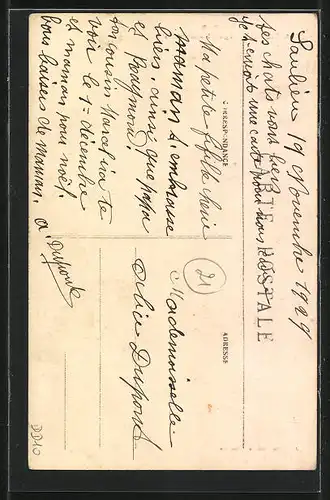 Saulieu 19 Novembre 1929
tes chats vont bien
je t'envoie une carte pour nous
CARTE POSTALE
CORRESPONDANCE
ADRESSE
Ma petite fifille chérie
maman t'embrasse
bien ainsi que papa
et Raymond.
ton cousin Marceline te
voir le 1er décembre
et maman pour noël.
bons baisers de maman.
A. Dupont
21
Mademoiselle
Alice Dupont
DD10